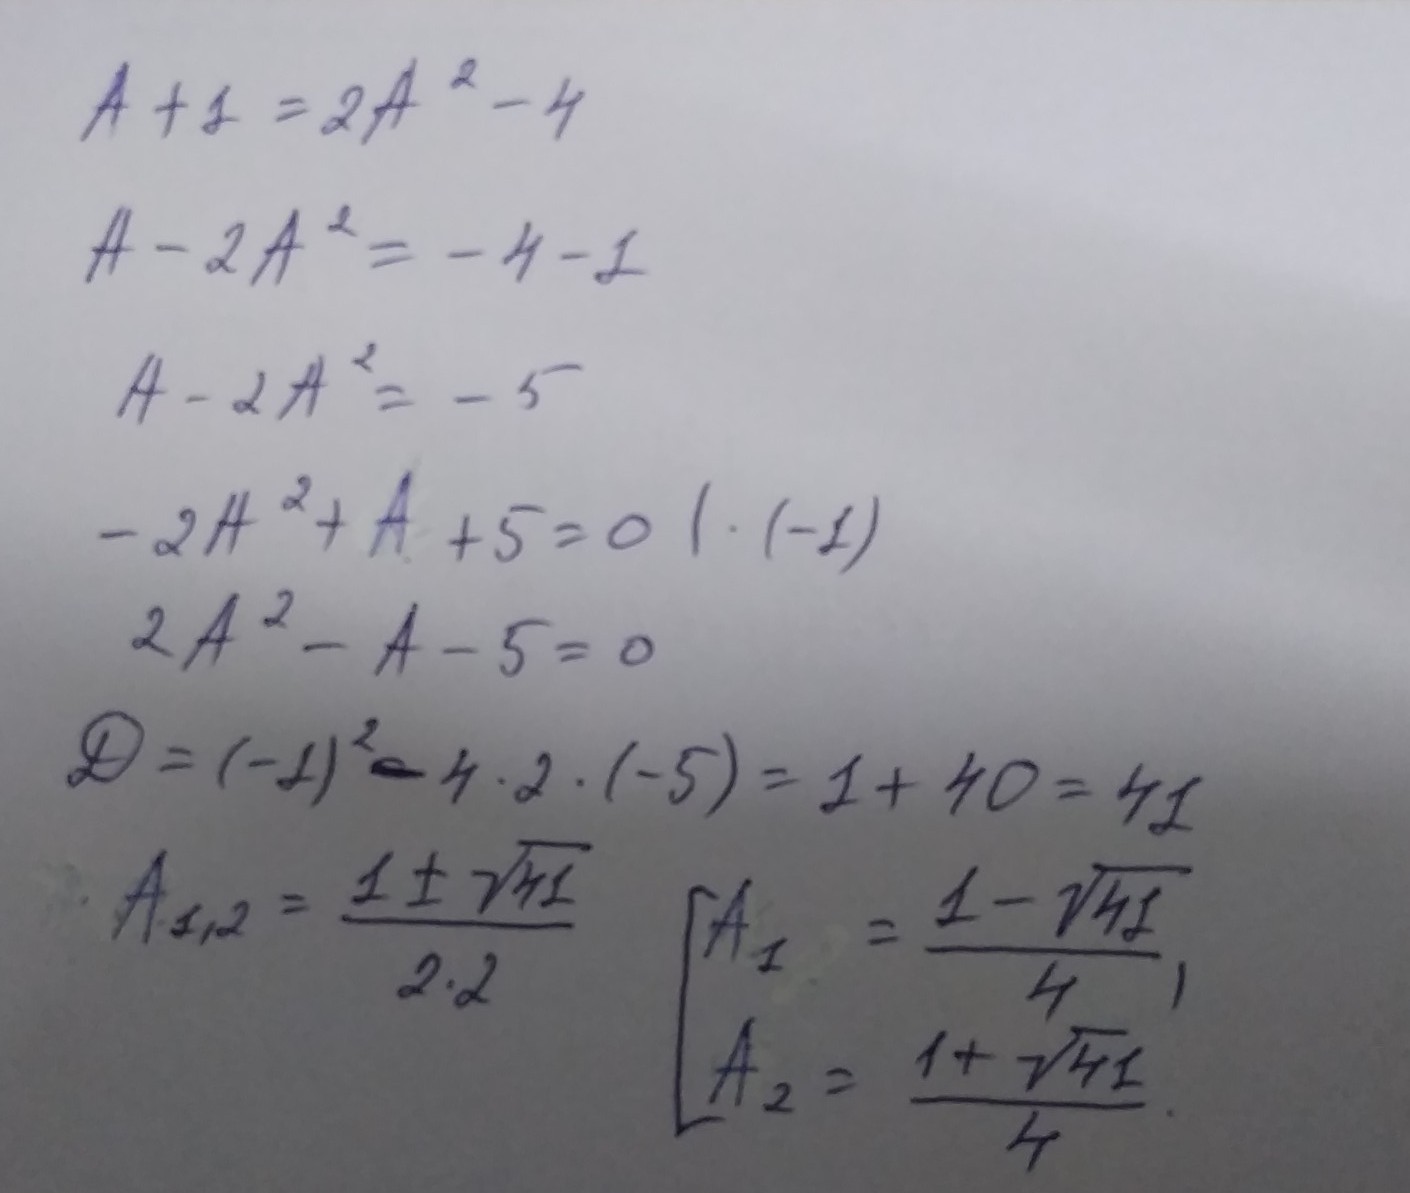 A + 1 = 2A² - 4
A - 2A² = - 4 - 1
A - 2A² = - 5
- 2A² + A + 5 = 0 | · (-1)
2A² - A - 5 = 0
D = (-1)² - 4 · 2 · (-5) = 1 + 40 = 41
A₁,₂ = (1 ± √41)/(2·2) [A₁ = (1 - √41)/4 ,
A₂ = (1 + √41)/4 .